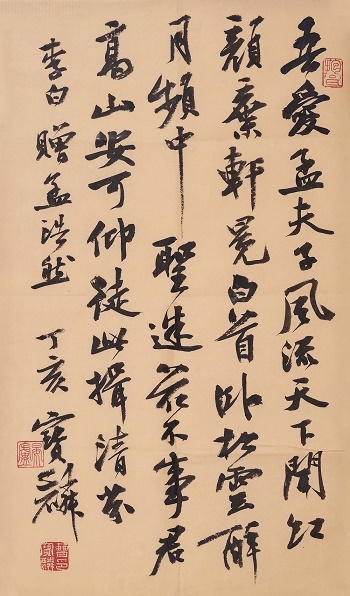 吾愛孟夫子風流天下聞紅
顏棄軒冕白首臥松雲醉
月頻中聖迷花不事君
高山安可仰徒此揖清芬
李白贈孟浩然 丁亥 寶麟